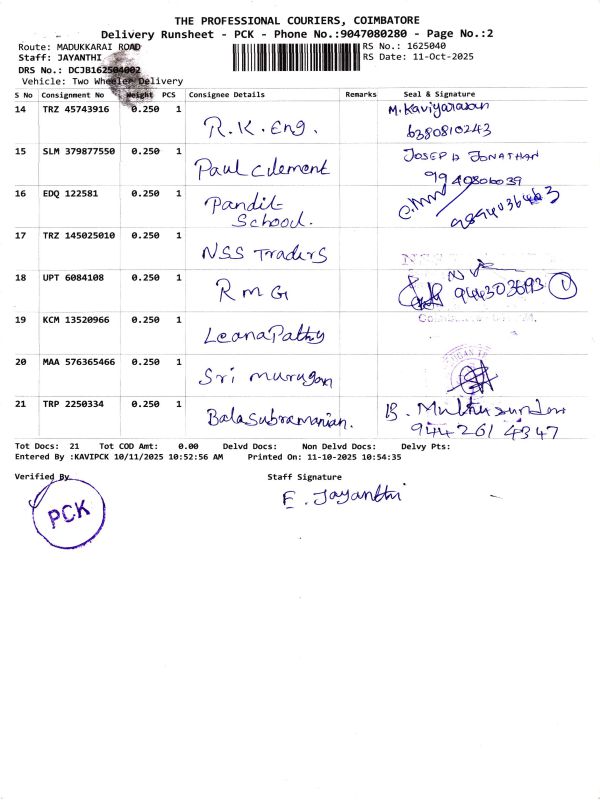 THE PROFESSIONAL COURIERS, COIMBATORE
Delivery Runsheet - PCK - Phone No.:9047080280 - Page No.:2
Route: MADUKKARAI ROAD
RS No.: 1625040
Staff: JAYANTHI
RS Date: 11-Oct-2025
DRS No.: DCJB162504002
Vehicle: Two Wheeler Delivery
S No Consignment No Weight PCS Consignee Details Remarks Seal & Signature
14 TRZ 45743916 0.250 1 R.K. Eng. M. Kaviyarasan
6380810243
15 SLM 379877550 0.250 1 Paul Clement JOSEPH JONATHAN
99 40806039
16 EDQ 122581 0.250 1 Pandit
School.
17 TRZ 145025010 0.250 1 NSS Traders
18 UPT 6084108 0.250 1 R M G 944303693
19 KCM 13520966 0.250 1 Leana Pathy
20 MAA 576365466 0.250 1 Sri Murugan
21 TRP 2250334 0.250 1 Balasubramanian.
944261 4347
Tot Docs: 21 Tot COD Amt: 0.00 Delvd Docs: Non Delvd Docs: Delvy Pts:
Entered By :KAVIPCK 10/11/2025 10:52:56 AM Printed On: 11-10-2025 10:54:35
Verified By Staff Signature
PCK E. Jayanthi